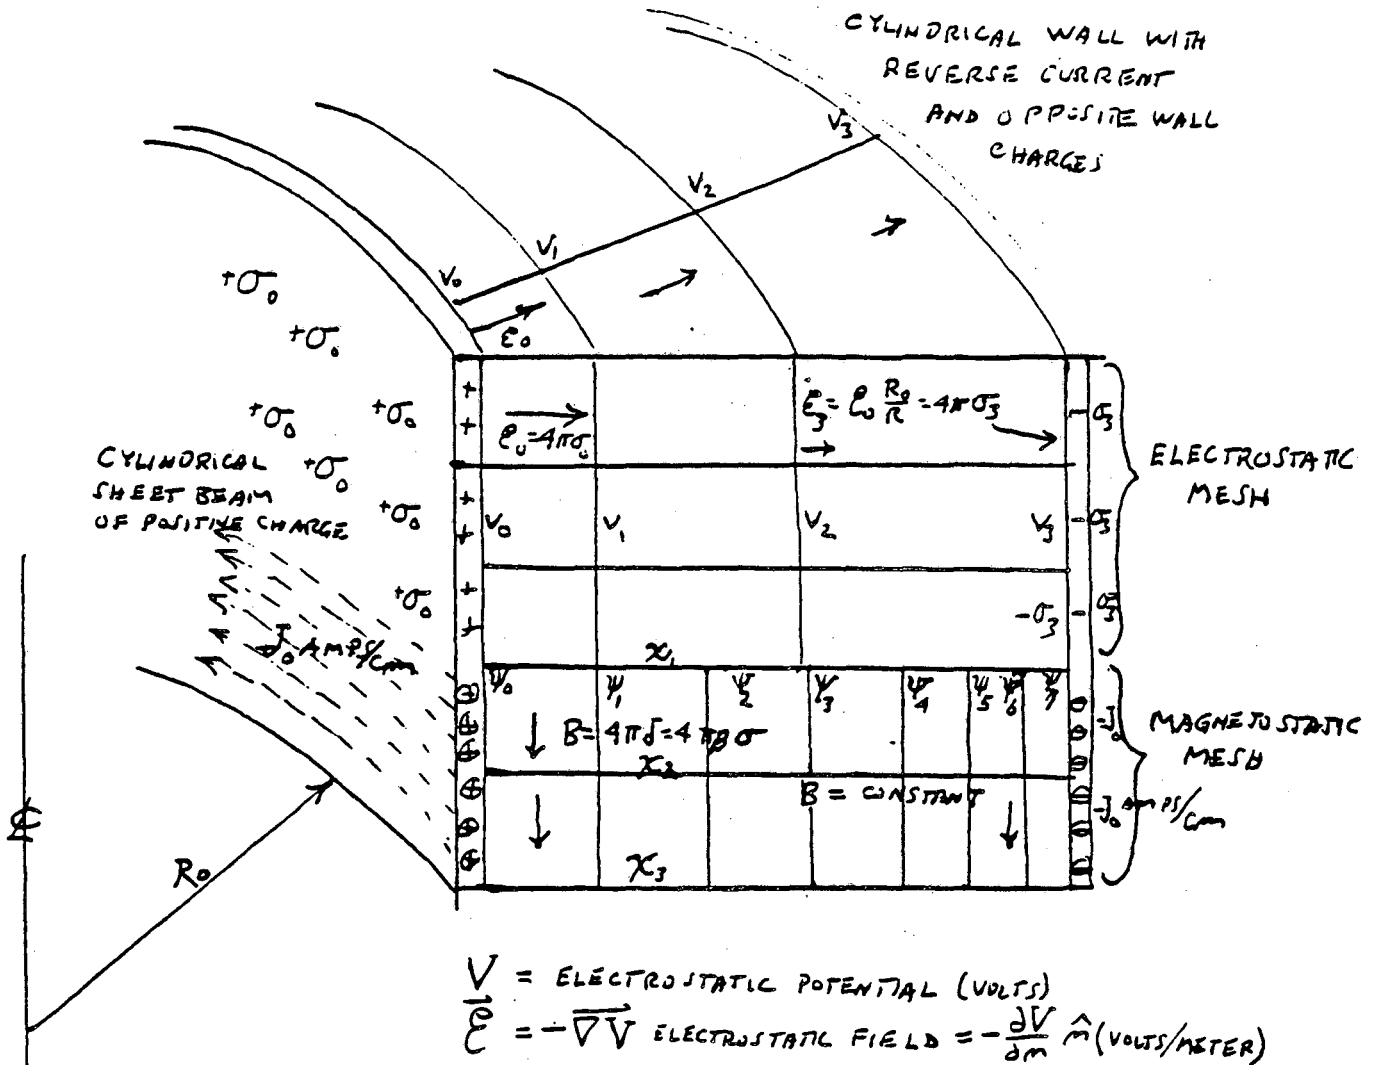 CYLINDRICAL WALL WITH
REVERSE CURRENT
AND OPPOSITE WALL
CHARGES
V₃
V₂
V₁
V₀
ℰ₀
+σ₀
+σ₀
+σ₀ +σ₀
+σ₀
+σ₀
+σ₀
CYLINDRICAL
SHEET BEAM
OF POSITIVE CHARGE
J₀ AMPS/cm
+
+
+
+
+
+
ℰ₀=4πσ₀
ℰ₃=ℰ₀ R₀/R=4πσ₃
- σ₃
V₀ V₁ V₂ V₃ - σ₃
-σ₃ - σ₃
ELECTROSTATIC
MESH
χ₁
ψ₀ ψ₁ ψ₂ ψ₃ ψ₄ ψ₅ ψ₆ ψ₇
B=4πδ=4πβσ
-J₀
χ₂
B = CONSTANT
-J₀ AMPS/cm
χ₃
MAGNETOSTATIC
MESH
℄
R₀
V = ELECTROSTATIC POTENTIAL (VOLTS)
ℰ⃗ = -∇V ELECTROSTATIC FIELD = -∂V/∂n n̂ (VOLTS/METER)